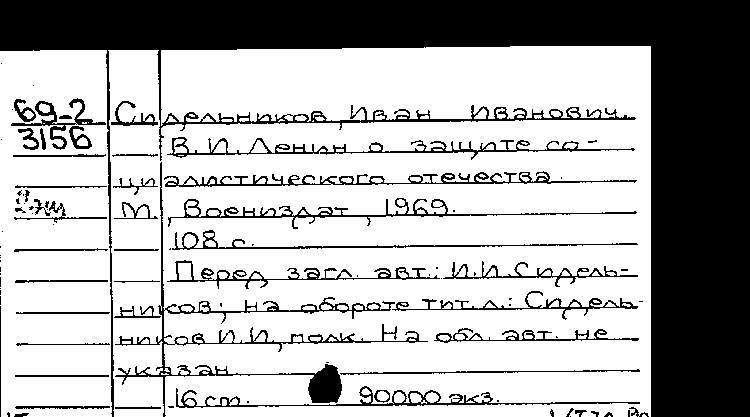 69-2 Сидельников, Иван Иванович.
3156 В.И. Ленин о защите со-
циалистического отечества.
М., Воениздат, 1969.
108 с.
Перед загл. авт.: И.И. Сидель-
ников; на обороте тит. л.: Сидель-
ников И.И., полк. На обл. авт. не
указан.
16 cm. 90000 экз.